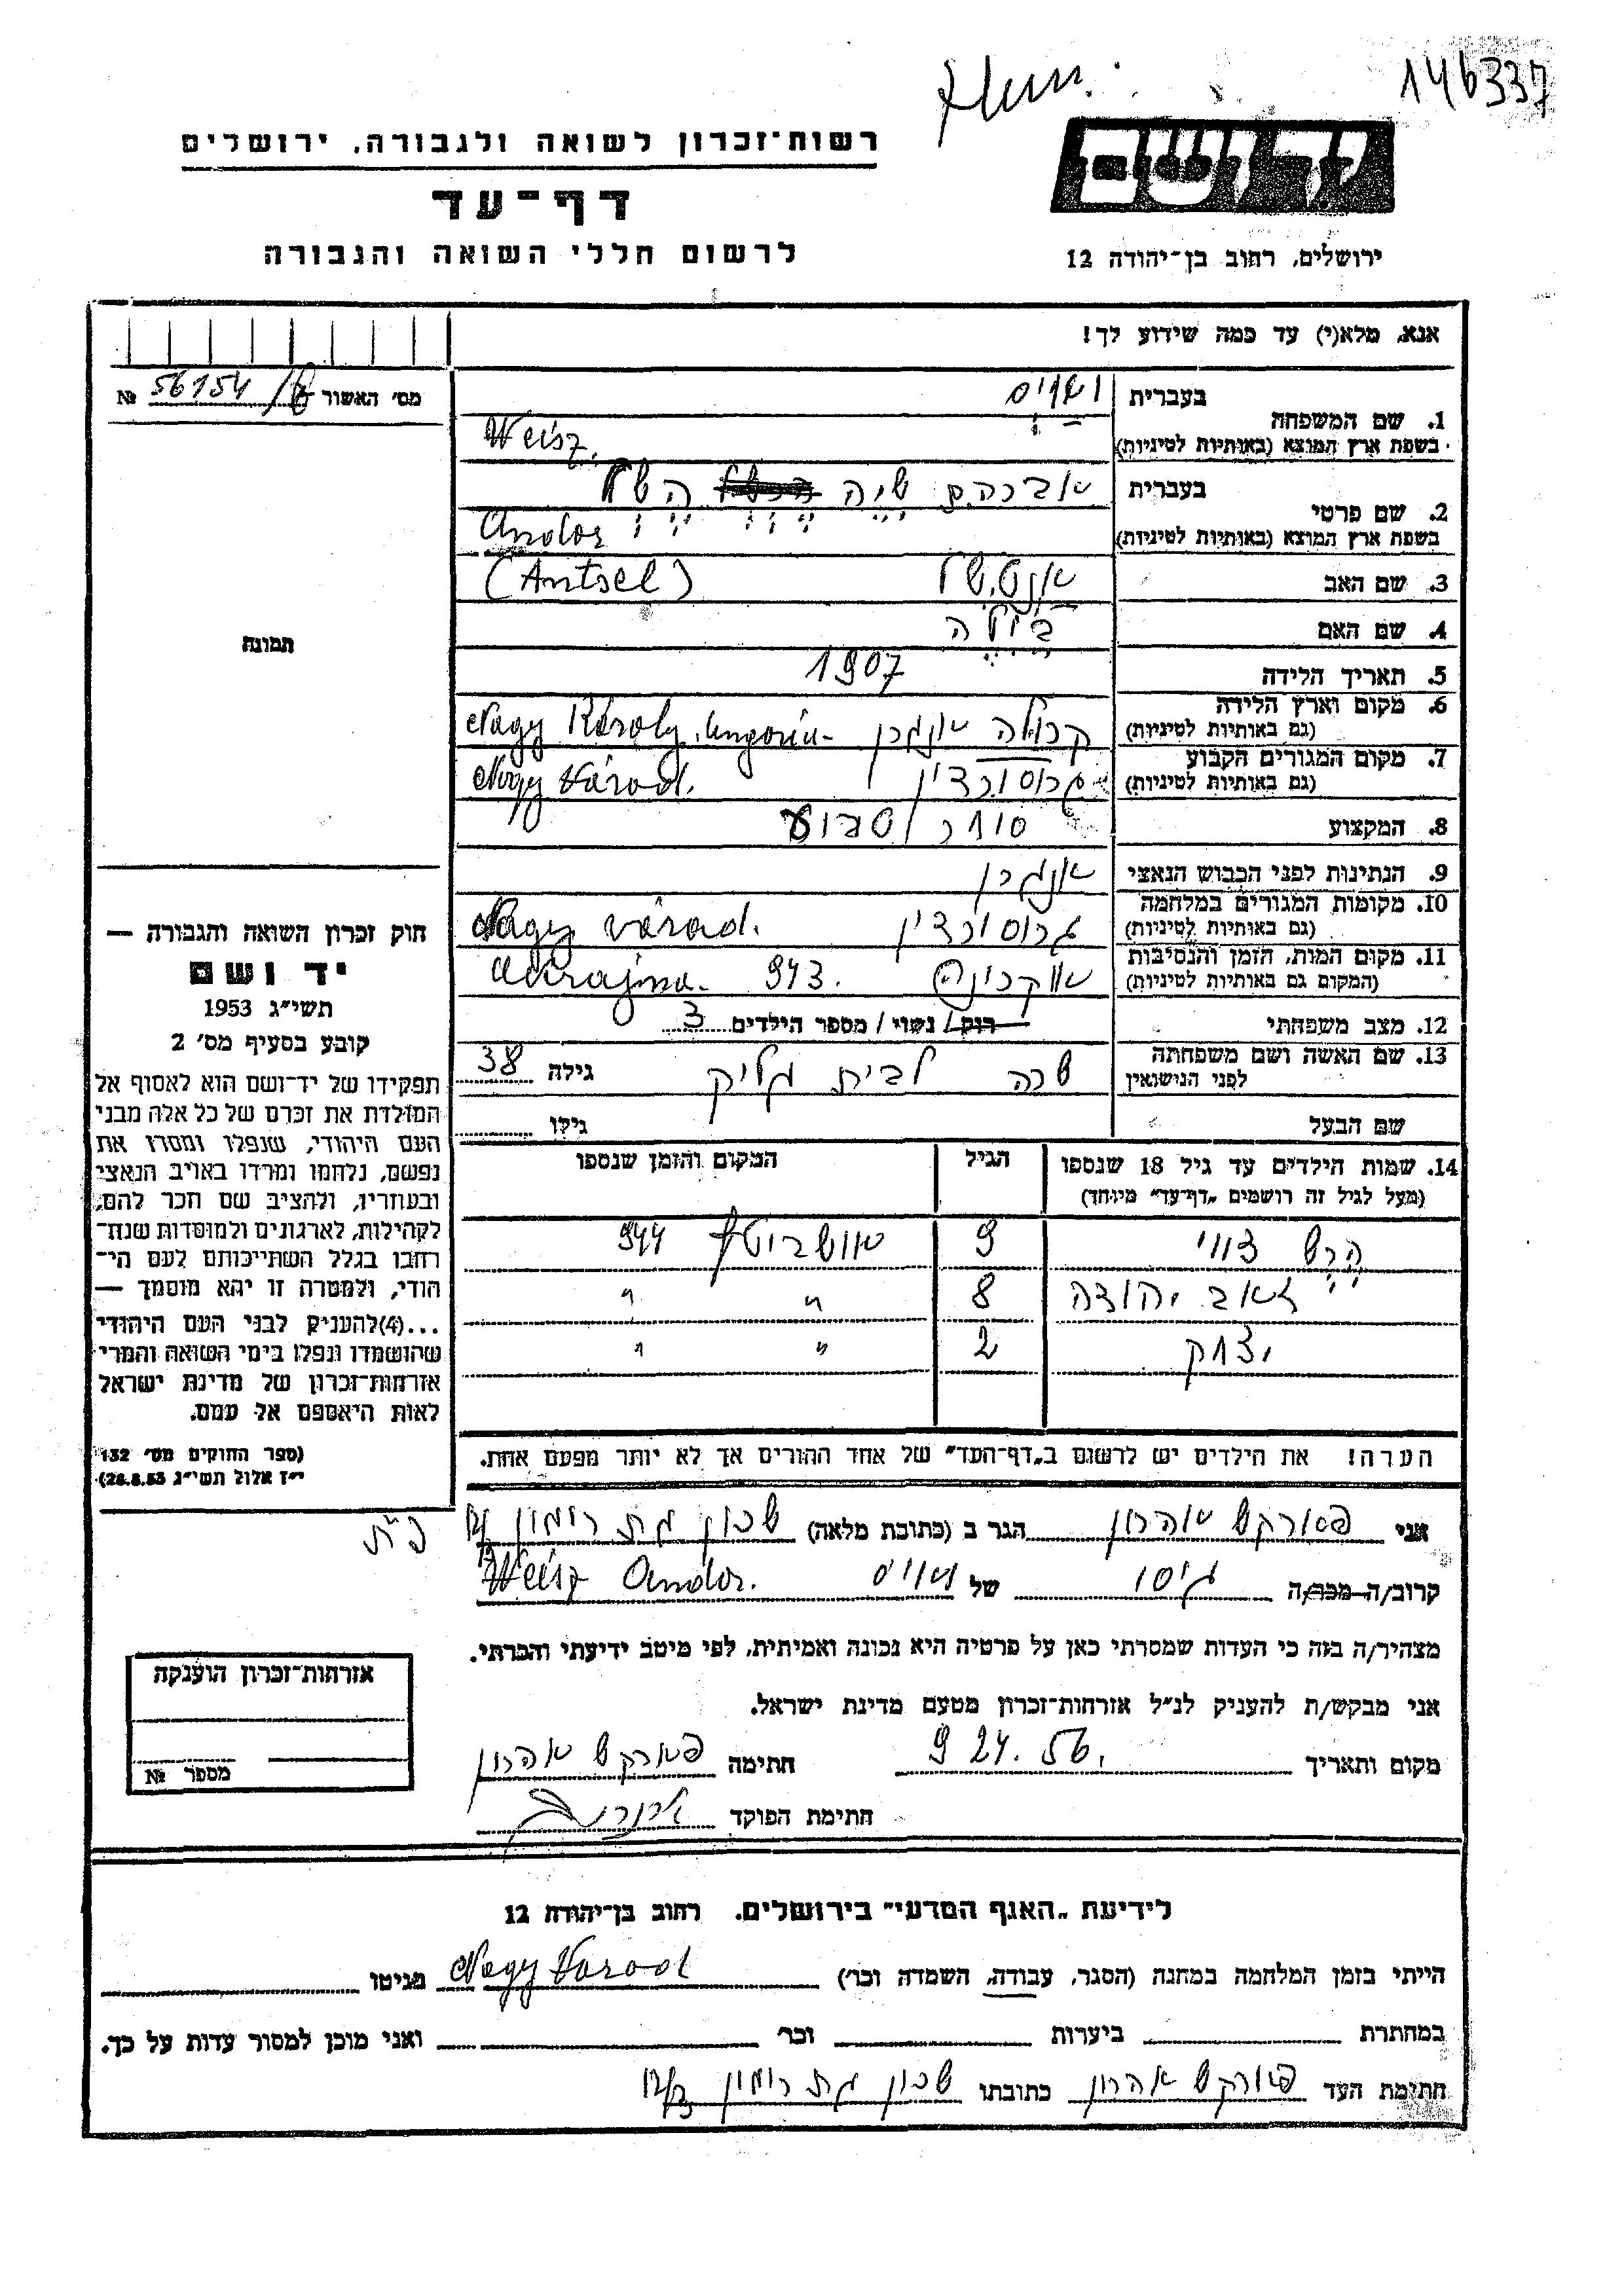 146337
Hun.
יד ושם
רשות-זכרון לשואה ולגבורה, ירושלים
דף-עד
לרשום חללי השואה והגבורה
ירושלים, רחוב בן-יהודה 12
אנא, מלא(י) עד כמה שידוע לך!
מס' האשור 56154/ №
1. שם המשפחה
בעברית
בשפת ארץ המוצא (באותיות לטיניות)
Weisz.
2. שם פרטי
בעברית אברהם
בשפת ארץ המוצא (באותיות לטיניות)
Andor
3. שם האב (Antsel)
4. שם האם ביילה
5. תאריך הלידה 1907
6. מקום וארץ הלידה
(גם באותיות לטיניות)
Nagy Károly. Ungaria-
7. מקום המגורים הקבוע
(גם באותיות לטיניות)
גרוסורדין Nagy Várad.
8. המקצוע סוחר
9. הנתינות לפני הכבוש הנאצי
10. מקומות המגורים במלחמה
(גם באותיות לטיניות)
גרוסורדין Nagy várad.
11. מקום המות, הזמן והנסיבות
(המקום גם באותיות לטיניות)
Ukrajna. 943.
12. מצב משפחתי רוק / נשוי / מספר הילדים 3
13. שם האשה ושם משפחתה
לפני הנישואין
שרה לבית גליק גילה 38
שם הבעל גילו
14. שמות הילדים עד גיל 18 שנספו הגיל המקום והזמן שנספו
(מעל לגיל זה רושמים "דף-עד" מיוחד)
הרש צווי 9 אושביץ 944
זאב יהודה 8 " "
יצחק 2 " "
הערה! את הילדים יש לרשום ב"דף-העד" של אחד ההורים אך לא יותר מפעם אחת.
תמונה
חוק זכרון השואה והגבורה —
יד ושם
תשי"ג 1953
קובע בסעיף מס' 2
תפקידו של יד-ושם הוא לאסוף אל
המולדת את זכרם של כל אלה מבני
העם היהודי, שנפלו ומסרו את
נפשם, נלחמו ומרדו באויב הנאצי
ובעוזריו, ולהציב שם וזכר להם,
לקהילות, לארגונים ולמוסדות שנח-
רבו בגלל השתייכותם לעם הי-
הודי, ולמטרה זו יהא מוסמך —
...(4)להעניק לבני העם היהודי
שהושמדו ונפלו בימי השואה והמרי
אזרחות-זכרון של מדינת ישראל
לאות היאספם אל עמם.
(ספר החוקים מס' 132
י"ז אלול תשי"ג 28.8.53)
אני פארקש אהרון הגר ב (כתובת מלאה) שכון גת רימון
קרוב/ה מכר/ה גיסו של ווייס Weisz Andor.
מצהיר/ה בזה כי העדות שמסרתי כאן על פרטיה היא נכונה ואמיתית, לפי מיטב ידיעתי והכרתי.
אני מבקש/ת להעניק לנ"ל אזרחות-זכרון מטעם מדינת ישראל.
מקום ותאריך 9 24. 56. חתימה פארקש אהרון
חתימת הפוקד
אזרחות-זכרון הוענקה
מספר №
לידיעת "האגף המדעי" בירושלים. רחוב בן-יהודה 12
הייתי בזמן המלחמה במחנה (הסגר, עבודה, השמדה וכו') Nagy Varad מגיטו
במחתרת ביערות וכו' ואני מוכן למסור עדות על כך.
חתימת העד פארקש אהרון כתובתו שכון גת רימון